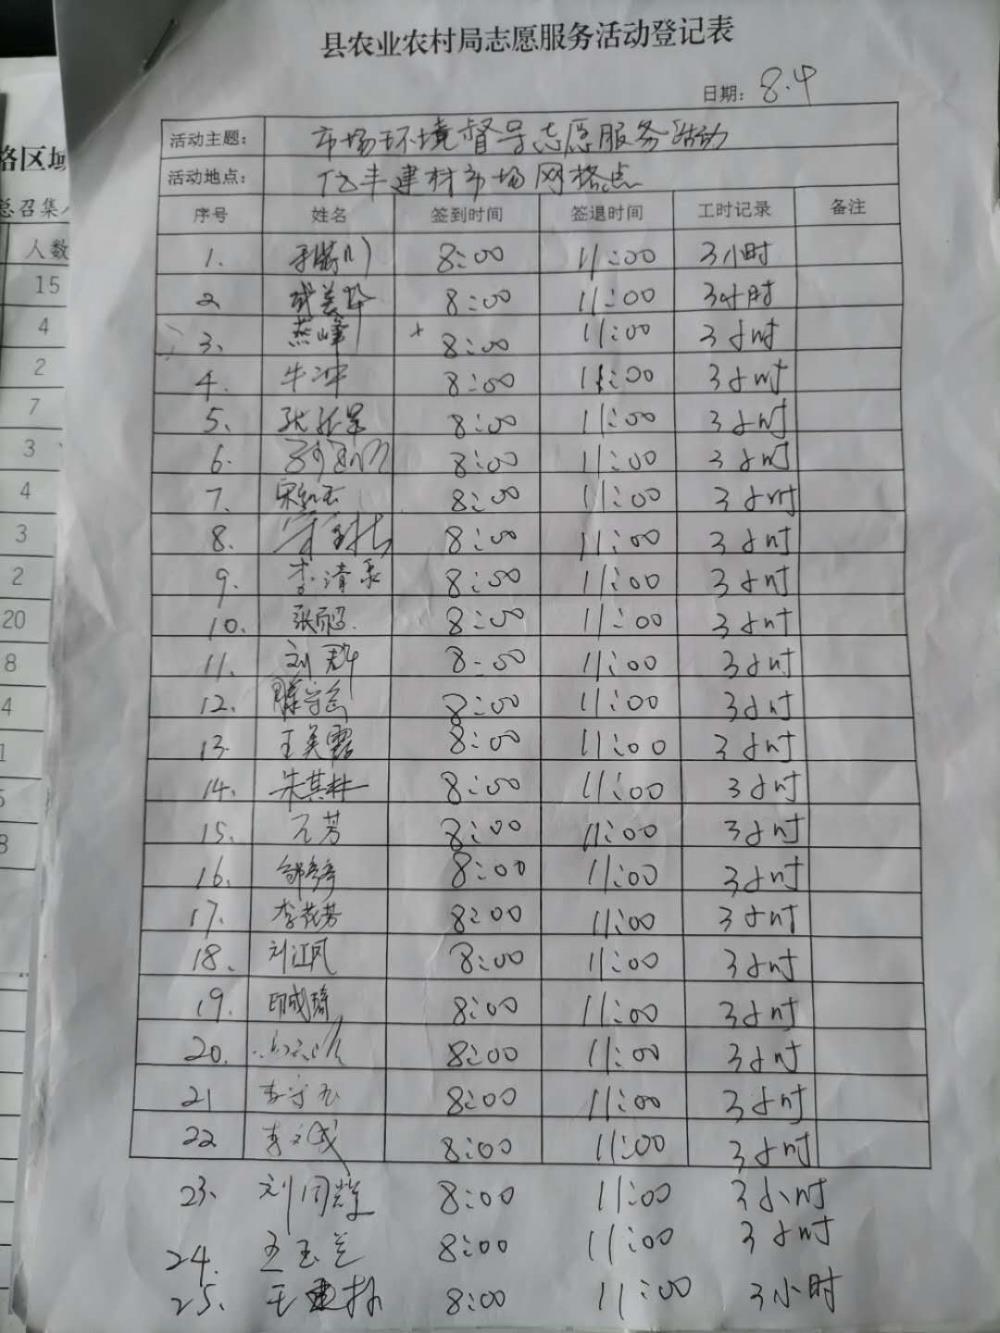 县农业农村局志愿服务活动登记表
日期：8.4
活动主题： 市场环境督导志愿服务活动
活动地点： 亿丰建材市场网格点
序号 姓名 签到时间 签退时间 工时记录 备注
1. 8:00 11:00 3小时
2 8:00 11:00 3小时
3. 燕峰 8:00 11:00 3小时
4. 牛冲 8:00 11:00 3小时
5. 8:00 11:00 3小时
6. 8:00 11:00 3小时
7. 8:00 11:00 3小时
8. 8:00 11:00 3小时
9. 李清泉 8:00 11:00 3小时
10. 8:00 11:00 3小时
11. 刘群 8:00 11:00 3小时
12. 8:00 11:00 3小时
13. 王美霞 8:00 11:00 3小时
14. 朱其林 8:00 11:00 3小时
15. 亓芳 8:00 11:00 3小时
16. 8:00 11:00 3小时
17. 李花芳 8:00 11:00 3小时
18. 刘江凤 8:00 11:00 3小时
19. 8:00 11:00 3小时
20. 8:00 11:00 3小时
21 8:00 11:00 3小时
22 李文成 8:00 11:00 3小时
23. 刘同辉 8:00 11:00 3小时
24. 王玉兰 8:00 11:00 3小时
25. 8:00 11:00 3小时
格区域
总召集人
人数
15
4
2
7
3
4
3
2
20
8
4
1
5
8